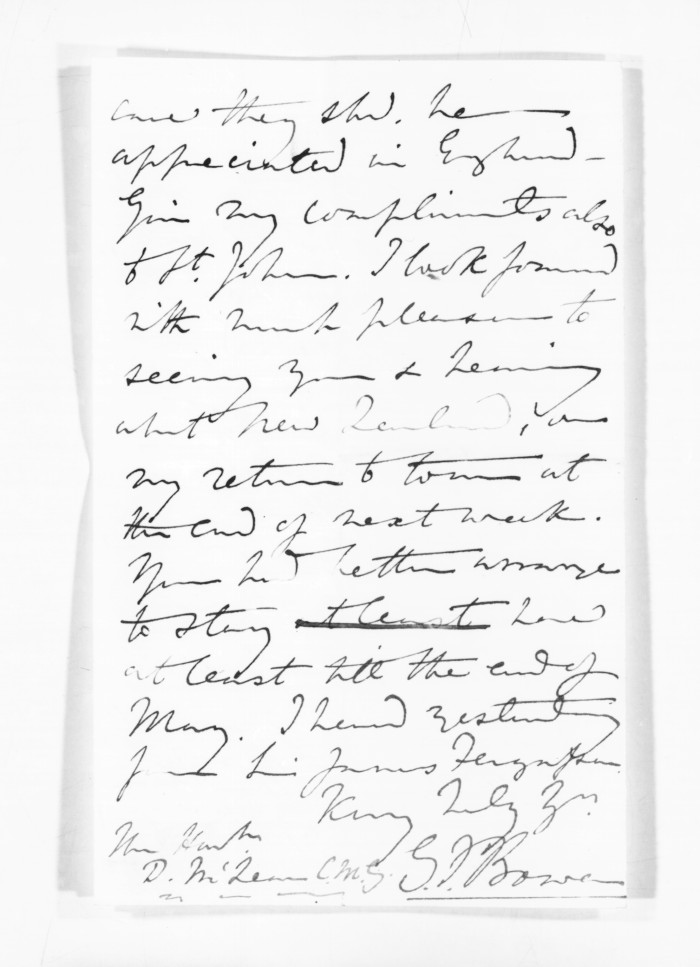 case they shd. be
appreciated in England –
Give my compliments also
to St. John. I look forward
with much pleasure to
seeing you & hearing
about New Zealand, on
my return to town at
the end of next week.
You had better arrange
to stay at least here
at least till the end of
May. I heard yesterday
from Sir James Fergusson.
Very truly Yrs
The Honble
D. McLean C.M.G. G.F. Bowen